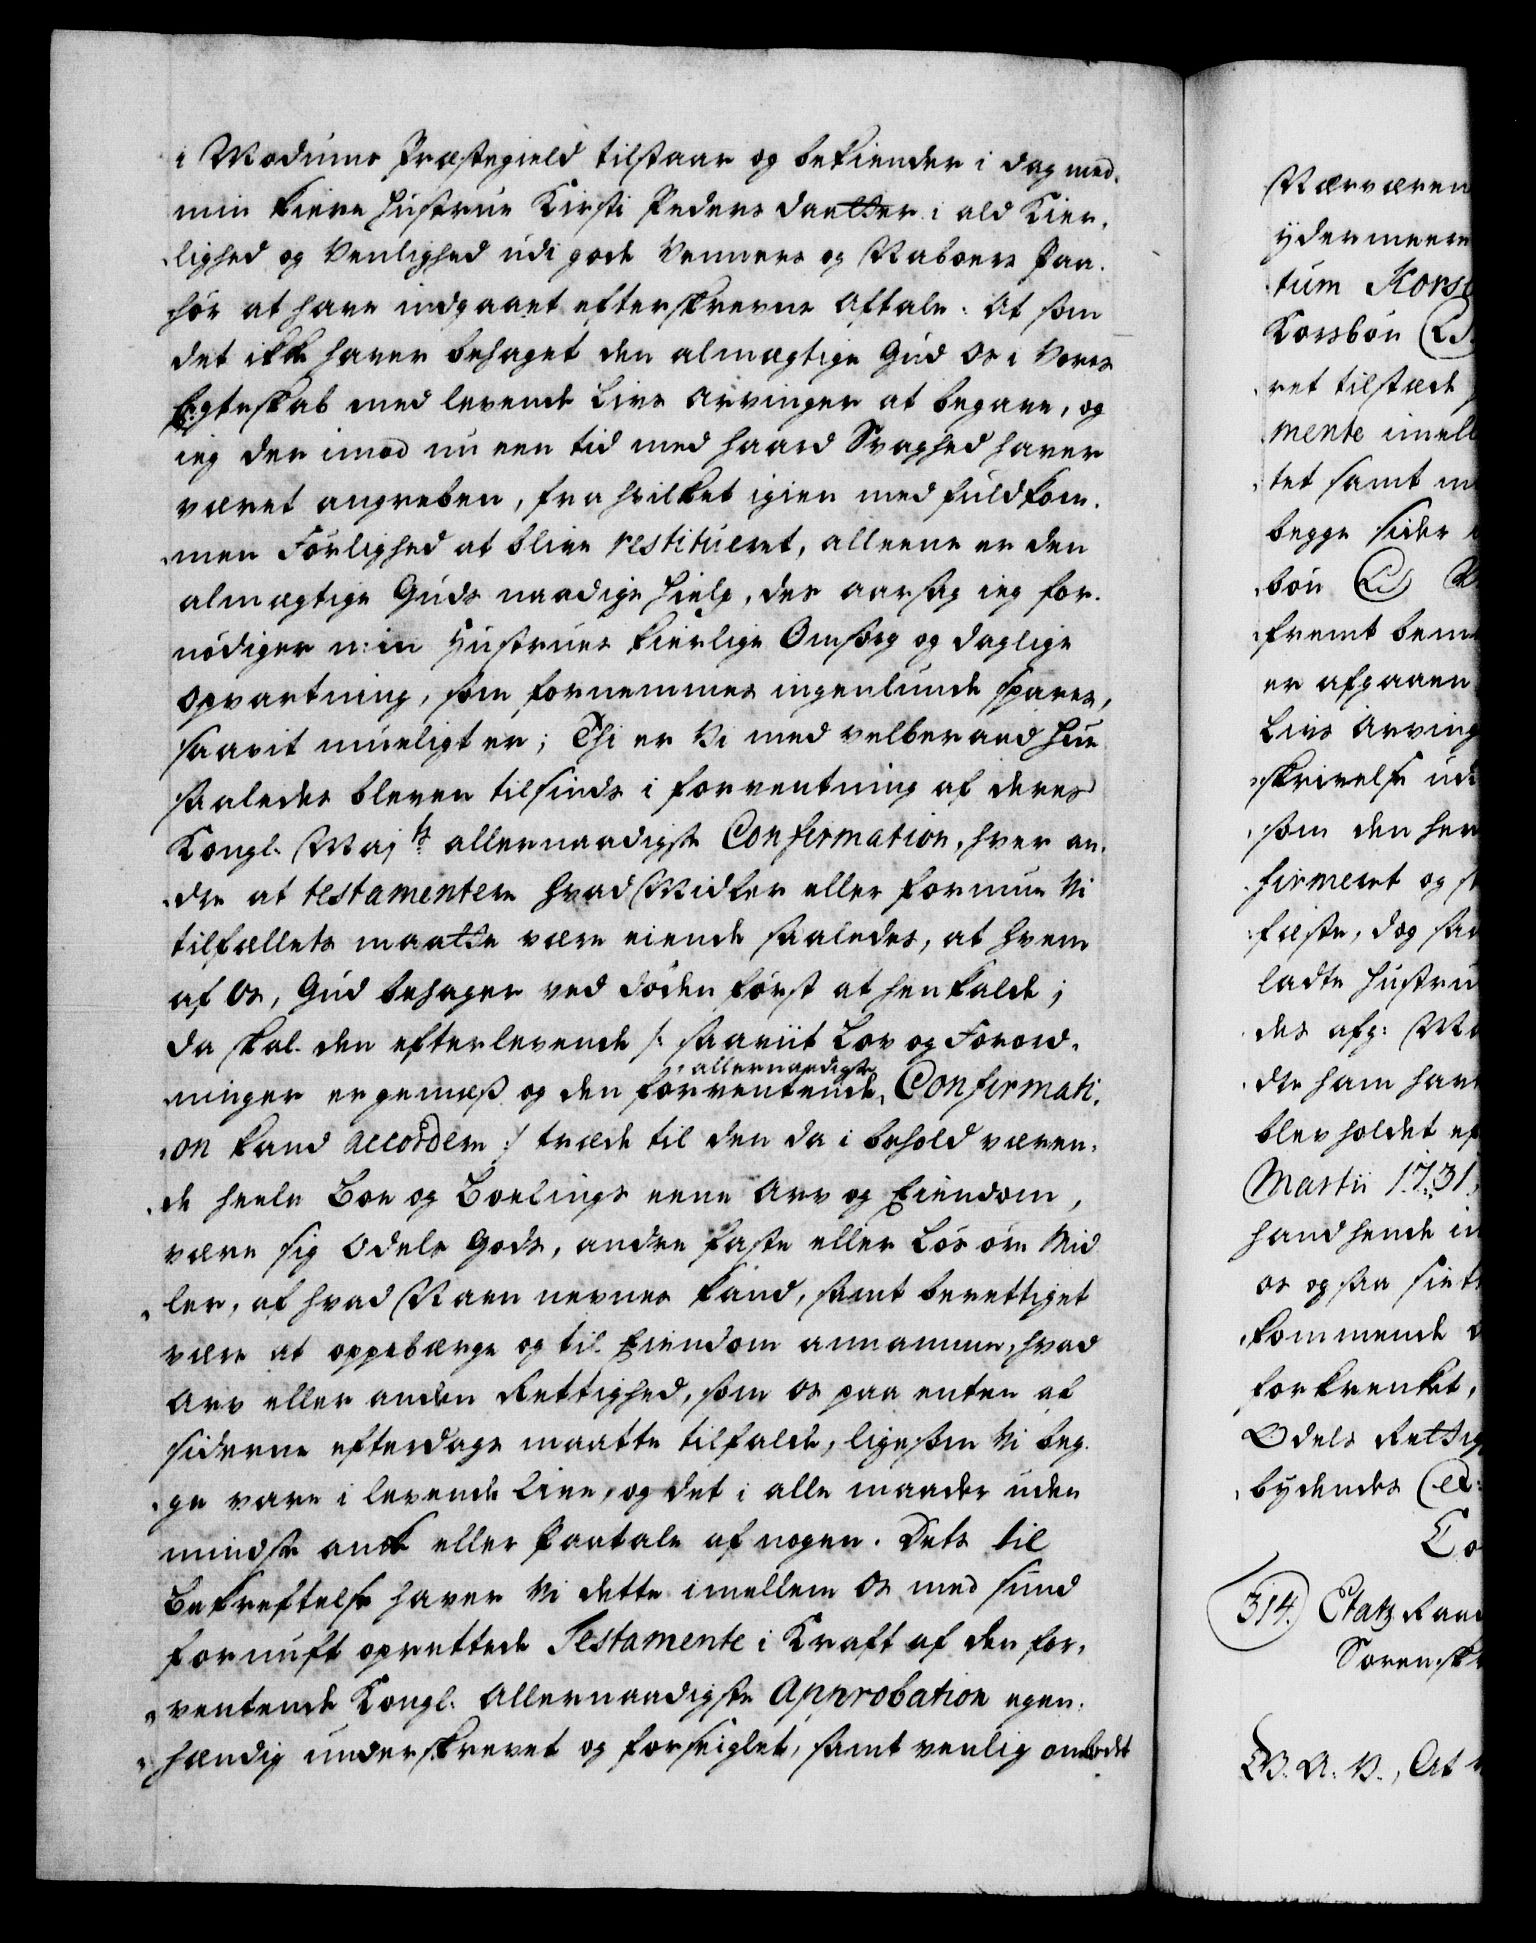 i Modums Præstegield tilstaar og bekiender i dag med
min kiere Hustrue Kirsti Peders daatter i ald Kier-
lighed og Venlighed udi gode Venners og Naboers Paa-
hør at have indgaaet efterskrevne Aftale: At som
det ikke haver behaget den almægtige Gud os i Vores
Egteskab med levende Livs Arvinger at begave, og
ieg der imod nu een tid med haard Svaghed haver
været angreben, fra hvilket igien med fuldkom-
men Førlighed at blive restitueret, alleene er den
almægtige Guds naadige Hielp, des aarsag ieg for-
nødiger min Hustrues kierlige Omsorg og daglige
Opvartning, som fornemmes ingenlunde spares,
saavit mueligt er; Thi er Vi med velberaad Hue
saaledes bleven tilsinds i forventning af deres
Kongl. Maj:ts allernaadigste Confirmation, hver an-
dre at testamentere hvad Midler eller formue Vi
tilfællets maatte være eiende saaledes, at hvem
af Os, Gud behager ved døden først at henkalde;
da skal den efterlevende /: saaviit Lov og Forord-
ninger er gemæss og den forventende allernaadigste Confirmati-
on kand accordere :/ træde til den da i behold væren-
de heele Boe og Boelings eene Arv og Eiendom,
være sig Odels Gods, andre faste eller Løs øre Mid-
ler, af hvad Navn nevnes kand, samt berettiget
være at oppebærge og til Eiendom annamme, hvad
Arv eller anden Rettighed, som os paa enten af
siderne efterdags maatte tilfalde, ligesom Vi beg-
ge vare i levende Live, og det i alle maader uden
mindste anke eller Paatale af nogen. Dets til
Bekreftelse haver Vi dette imellem Os med sund
fornuft oprettede Testamente i Kraft af den for-
ventende Kongl. Allernaadigste Approbation egen-
hændig underskrevet og forseiglet, samt venlig ombedet
Nærværen
ydermeere
tum Kors
Korsbøn
ret tilstæde
mente imell
tet samt
begge sider
bøn
fremt bem
er afgaaen
Livs Arving
skrivelse udi
som den her
firmeret og
fæste, dog saa
ladte Hustru
des afg:
dre ham have
blev holdet ef
Martii 1731,
hand hende in
os og saa
kommende
forkrenket,
Odels Rettig
bydendes
314. Etatz Raad
Sorenskr
At